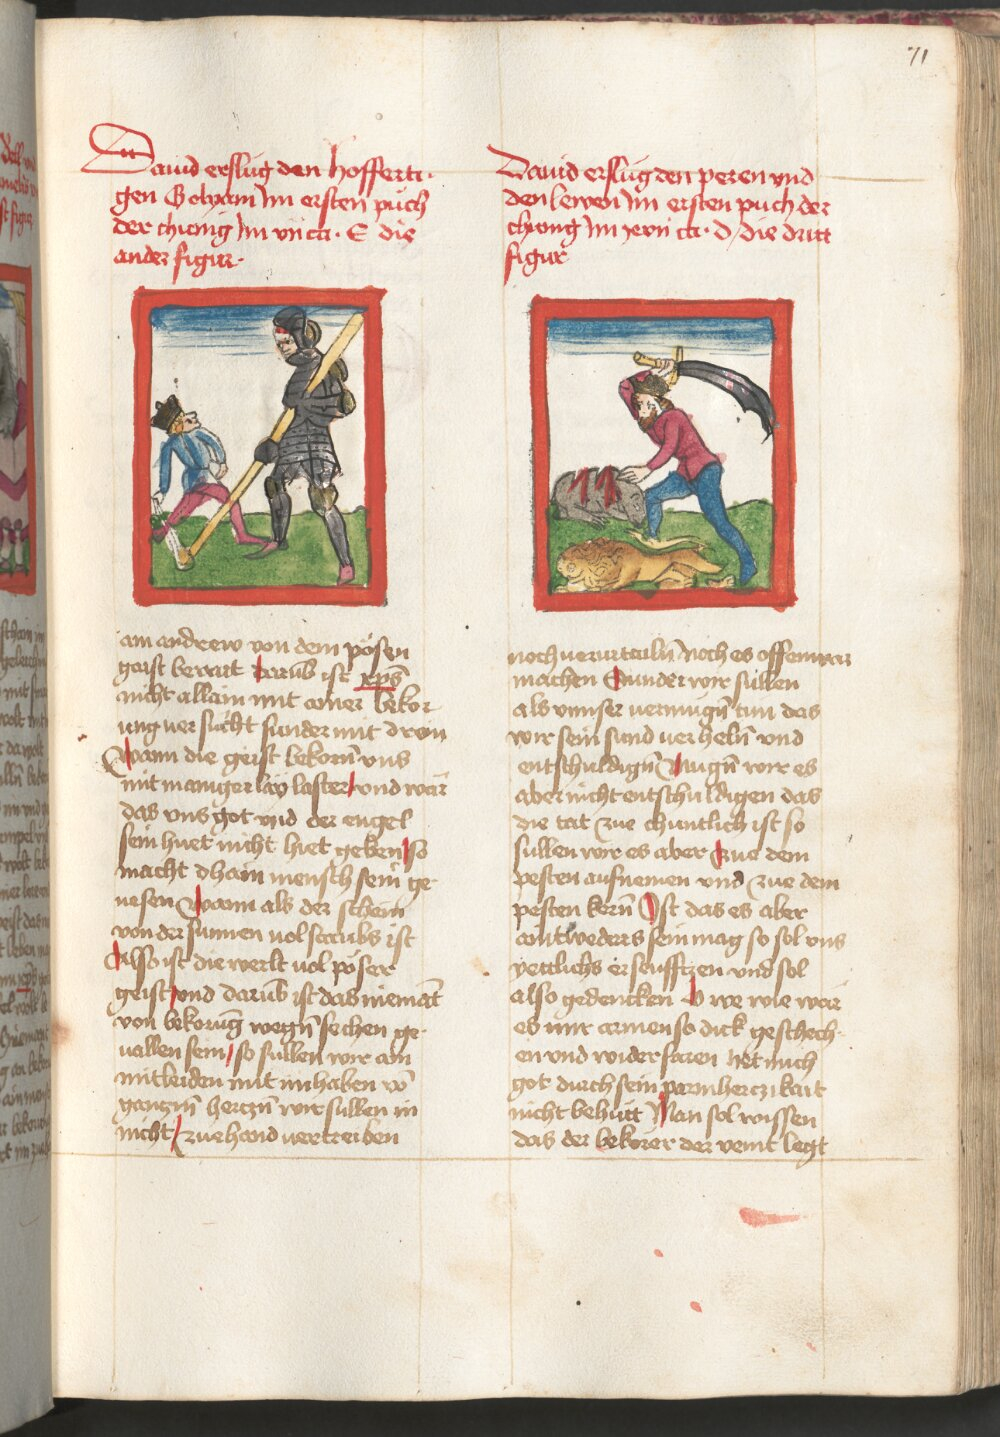 71
Dauid erslug den hofferti-
gen Golyam im ersten puch
der chunig im vii ca. E die
ander figur.
am andrew von dem pösen
geist bewart darub ist xps
nicht allain mit ainer bekor
ung versucht sunder mit drein
Wann die geist bekorn uns
mit maniger lay laster und wär
das uns got und der engel
sein huet nicht hiet geben so
macht dhain mensch sein ge-
nesen Wann als der schein
von der sunnen vol staubs ist
Also ist die werlt vol pöser
geist und darub ist das niemāt
von bekorūg wegn sechen ge-
uallen sein so sullen wir ain
mitleiden mit im haben vō
ganczm herczn wir sullen in
nicht zuehand vertreiben
Dauid erslug den peren vnd
den lewen im ersten puch der
chunig im xvii ca. d die dritt
figur
noch verurtailn noch es offenwar
machen Sunder wir sullen
als unnser vermugn tun das
wir sein sund verheln und
entschuldign Mugn wir es
aber nicht entschuldigen das
die tat zue chuntlich ist so
sullen wir es aber zue dem
pesten aufnemen und zue dem
pesten kern Ist das es aber
aintweders sein mag so sol uns
yettlichs erseufftzen und sol
also gedencken O we wie wär
es mir armen so dick geschech-
en und widerfaren het mich
got durch sein parmherczikait
nicht behutt Man sol wissen
das der bekorer der veint legt